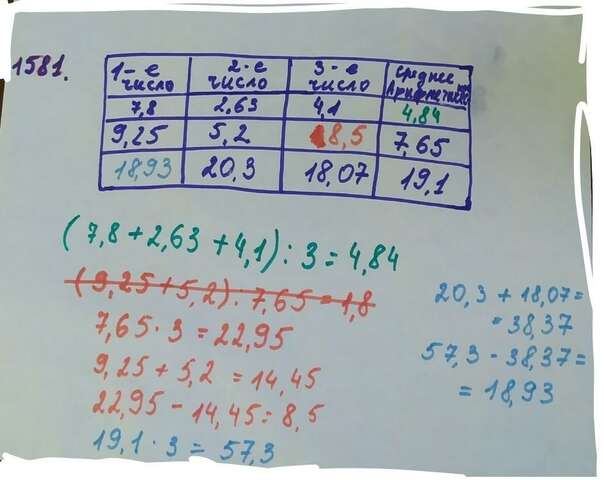 1581.
1-е число 2-е число 3-е число среднее арифметич.
7,8 2,63 4,1 4,84
9,25 5,2 8,5 7,65
18,93 20,3 18,07 19,1
(7,8 + 2,63 + 4,1) : 3 = 4,84
(9,25 + 5,2) · 7,65 = 1,8
7,65 · 3 = 22,95
9,25 + 5,2 = 14,45
22,95 - 14,45 = 8,5
19,1 · 3 = 57,3
20,3 + 18,07 =
= 38,37
57,3 - 38,37 =
= 18,93